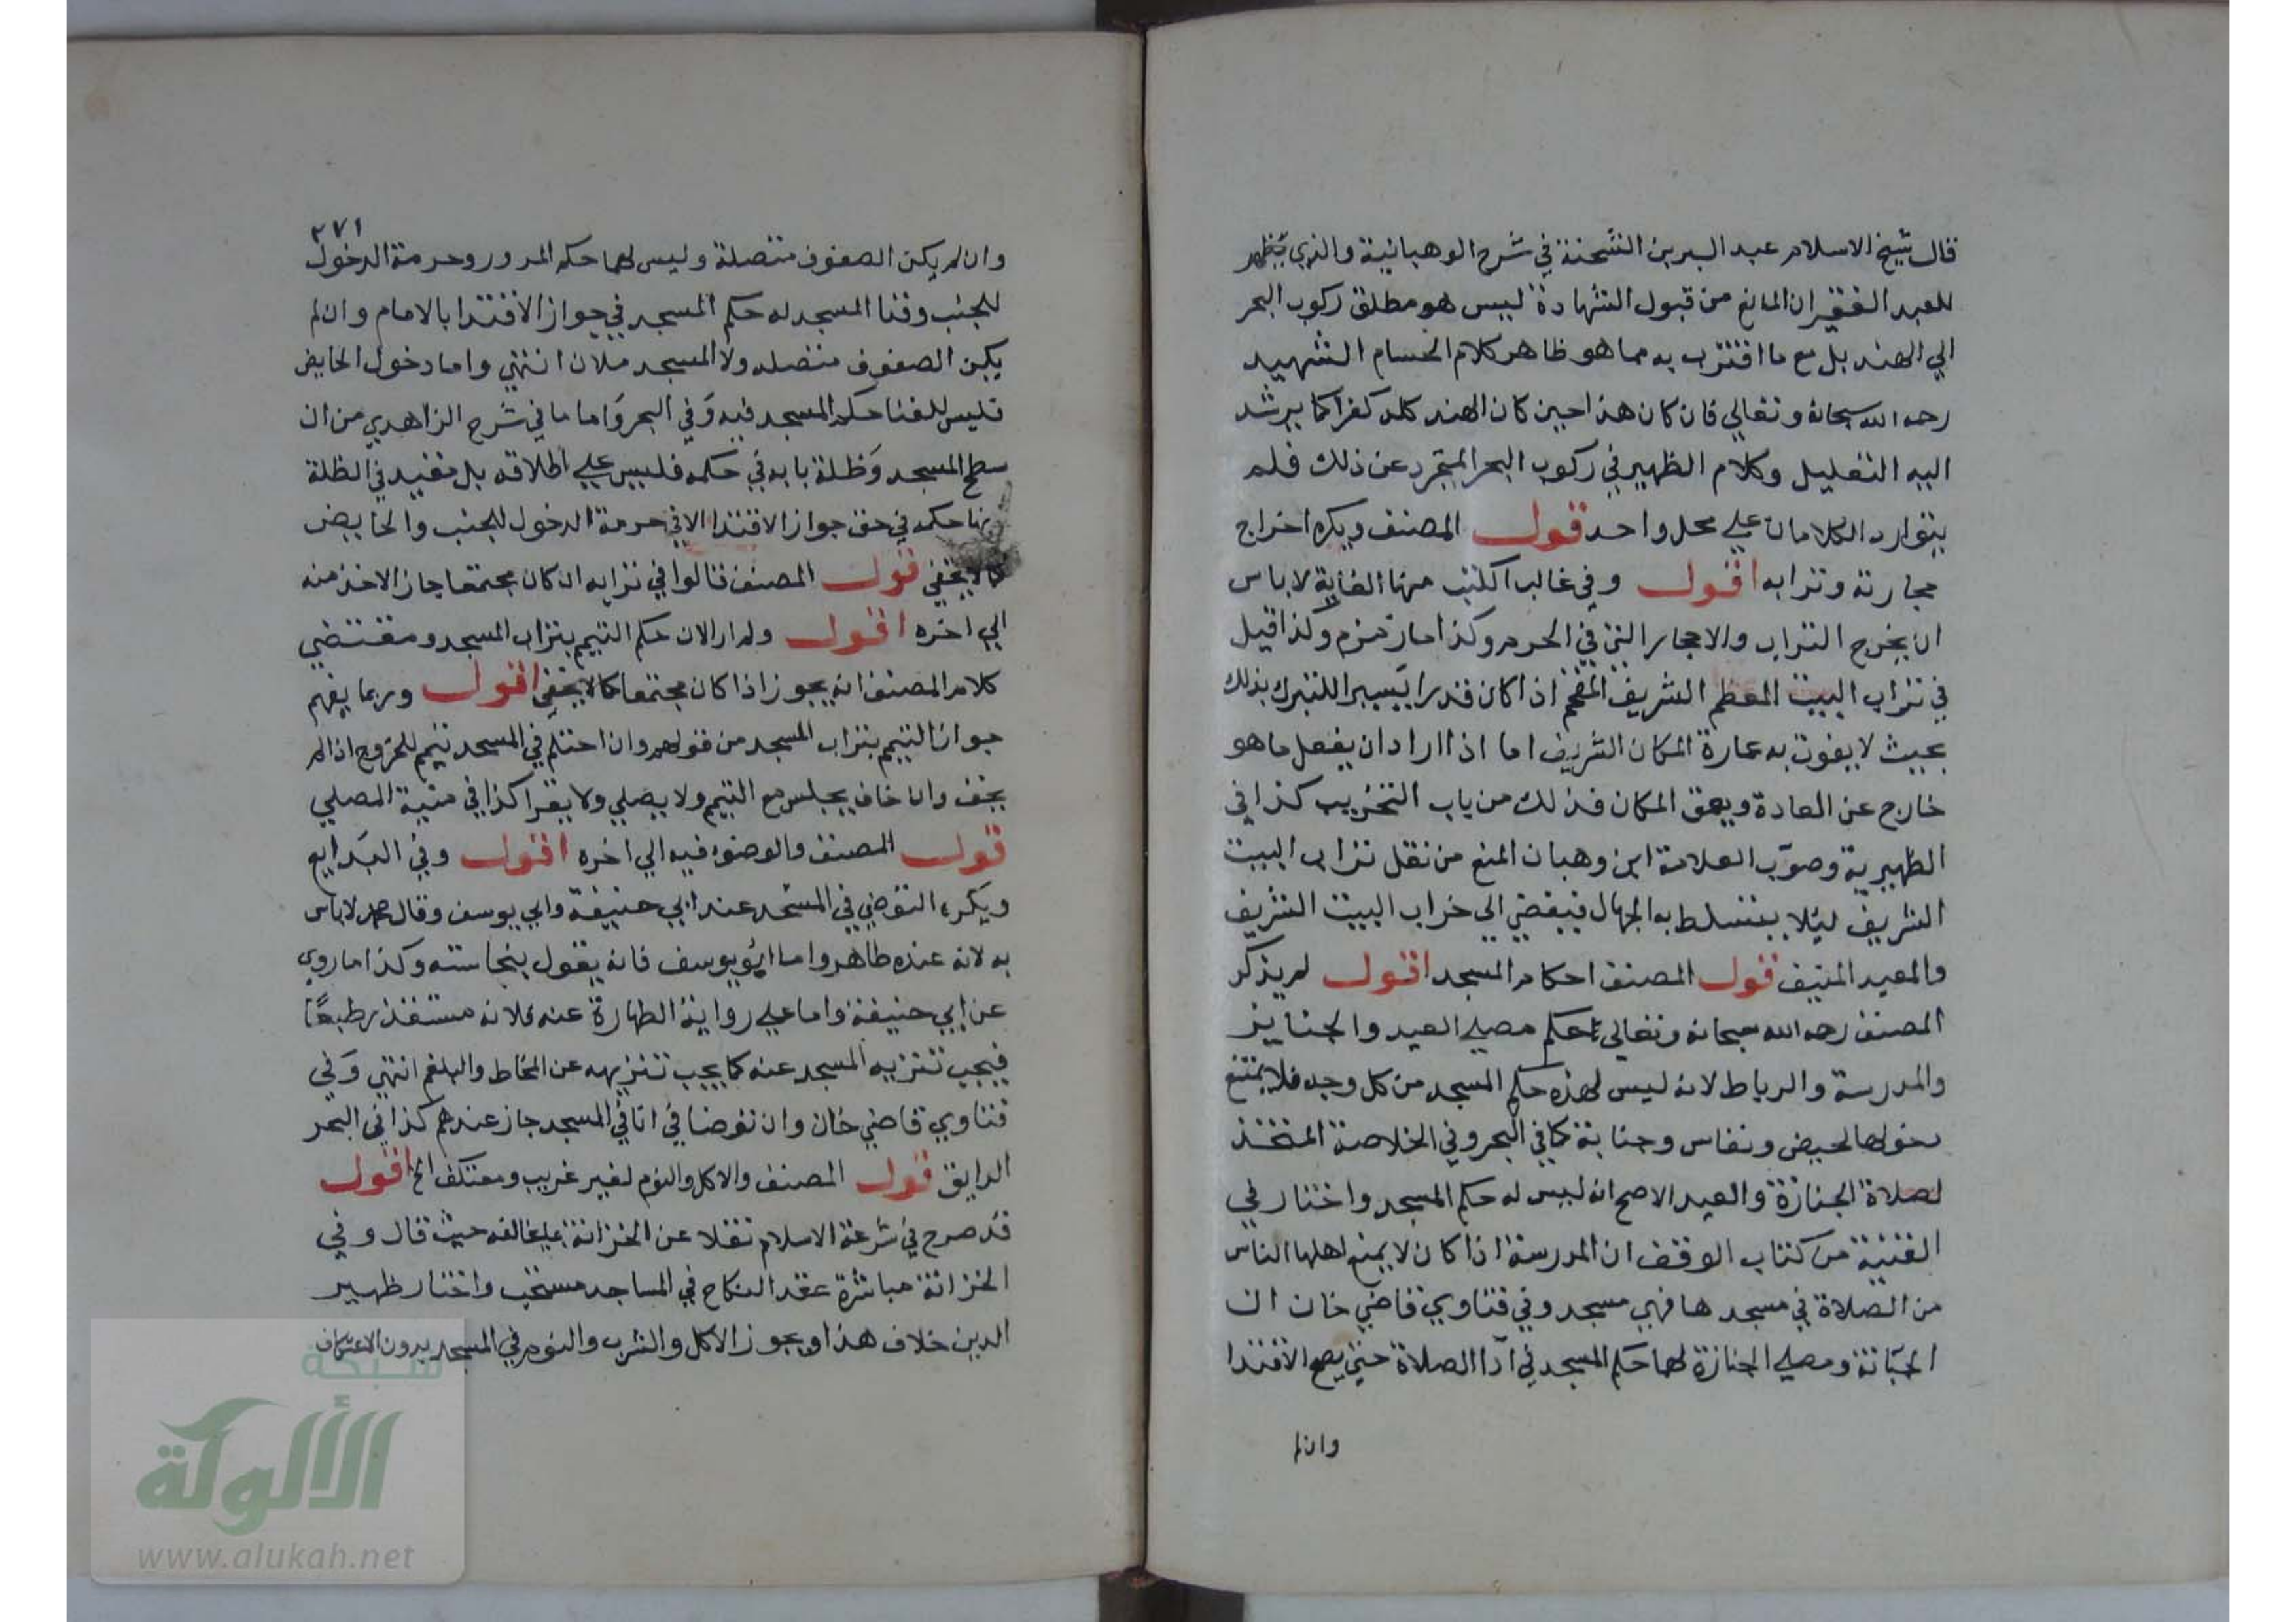 قال شيخ الاسلام عبد البر بن الشحنة في شرح الوهبانية والذي يظهر
للعبد الفقير ان المانع من قبول الشهادة ليس هو مطلق ركوب البحر
الي الهند بل مع ما اقترب به مما هو ظاهر كلام الحسام الشهيد
رحمه الله سبحانه وتعالي فان كان هذا حين كان الهند كله كفرا كما يرشد
اليه التعليل وكلام الظهير في ركوب البحر المتجرد عن ذلك فلم
يتوارد الكلامان علي محل واحد قول المصنف ويكره اخراج
حجارته وترابه اقول وفي غالب الكتب منها الغاية لا باس
ان يخرج التراب والاحجار التي في الحرم وكذا ما زمزم وكذا قيل
في تراب البيت المعظم الشريف المفخم اذا كان قدرا يسيرا للتبرك بذلك
بحيث لا يفوت به عمارة المكان الشريف اما اذا اراد ان يفعل ما هو
خارج عن العادة ويعمق المكان فذلك من باب التخريب كذا في
الظهيرية وصوب العلامة ابن وهبان المنع من نقل تراب البيت
الشريف ليلا يتسلط به الجهال فيفضي الي خراب البيت الشريف
والمعبد المنيف قول المصنف احكام المسجد اقول لم يذكر
المصنف رحمه الله سبحانه وتعالي حكم مصلي العيد والجنايز
والمدرسة والرباط لانه ليس لهذه حكم المسجد من كل وجه فلا يمتنع
دخولها لحيض ونفاس وجنابة كما في البحر وفي الخلاصة المتخذ
لصلاة الجنازة والعيد الاصح انه ليس له حكم المسجد واختار في
القنية من كتاب الوقف ان المدرسة اذا كان لا يمنع اهلها الناس
من الصلاة في مسجدها فهي مسجد وفي فتاوي قاضي خان ان
الجبانة ومصلي الجنازة لهما حكم المسجد في ادا الصلاة حتي يصح الاقتدا
وان لم
٢٧١
وان لم يكن الصفوف متصلة وليس لهما حكم المرور وحرمة الدخول
للجنب وفنا المسجد له حكم المسجد في جواز الاقتدا بالامام وان لم
يكن الصفوف متصله ولا المسجد ملان انتهي واما دخول الحايض
فليس للفنا حكم المسجد فيه وفي البحر واما ما في شرح الزاهدي من ان
سطح المسجد وظلة بابه في حكمه فليس علي اطلاقه بل مقيد في الظلة
بانها حكمه في حق جواز الاقتدا لا في حرمة الدخول للجنب والحايض
كما لا يخفي قول المصنف قالوا في ترابه ان كان مجتمعا جاز الاخذ منه
الي اخره اقول ولم ار الان حكم التيمم بتراب المسجد ومقتضي
كلام المصنف انه يجوز اذا كان مجتمعا كما لا يخفي اقول وربما يفهم
جواز التيمم بتراب المسجد من قولهم وان احتلم في المسجد تيمم للخروج اذا لم
يخف وان خاف يجلس مع التيمم ولا يصلي ولا يقرا كذا في منية المصلي
قول المصنف والوضوء فيه الي اخره اقول وفي البدايع
ويكره التوضي في المسجد عند ابي حنيفة وابي يوسف وقال محمد لا باس
به لانه عنده طاهر واما ابو يوسف فانه يقول بنجاسته وكذا ما روي
عن ابي حنيفة واما علي رواية الطهارة عنه فلانه مستقذر طبعًا
فيجب تنزيه المسجد عنه كما يجب تنزيهه عن المخاط والبلغم انتهي وفي
فتاوي قاضي خان وان توضا في انا في المسجد جاز عندهم كذا في البحر
الرايق قول المصنف والاكل والنوم لغير غريب ومعتكف الخ اقول
قد صرح في شرعة الاسلام نقلا عن الخزانة بما يخالفه حيث قال وفي
الخزانة مباشرة عقد النكاح في المساجد مستحب واختار ظهير
الدين خلاف هذا ويجوز الاكل والشرب والنوم في المسجد بدون الاعتكاف
شبكة
الألوكة
www.alukah.net